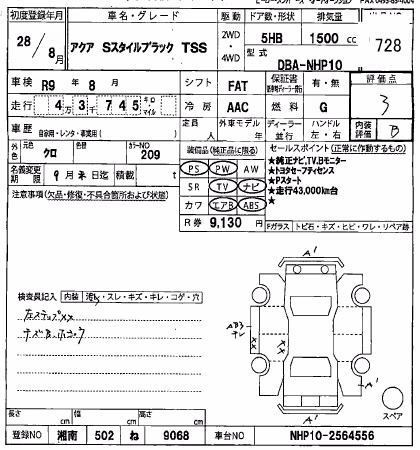 初度登録年月 車名・グレード 駆動 ドア数・形状 排気量
28/8月 アクア Sスタイルブラック TSS 2WD・4WD 5HB 1500 cc 728
型式
DBA-NHP10
車検 R9 年 8 月 シフト FAT 保証書 有・無 評価点
走行 4万3千745キロ マイル 冷房 AAC 燃料 G 3
車歴 自家用・レンタ・事業用( ) 定員 人 外車モデル 年 ディーラー・並行 ハンドル 左・右 内装評価 B
外色 クロ 色替 カラーNO 209
装備品(純正品に限る) セールスポイント(正常に作動するもの)
名義変更期限 9月末日迄 積載 t
PS PW AW
SR TV ナビ
カワ エアB ABS
R券 9,130 円
★純正ナビ,TV,Bモニター
★トヨタセーフティセンス
★Pスタート
★走行43,000km台
★
注意事項(欠品・修復・不具合箇所および状態)
Fガラス トビ石・キズ・ヒビ・ワレ・リペア跡
A'
検査員記入 内装 汚れ・スレ・キズ・キレ・コゲ・穴
左ステップXX
キズB.ホコウ
XX XX
A'
A'
スペア
長さ cm 幅 cm 高さ cm
登録NO 湘南 502 ね 9068 車台NO NHP10-2564556